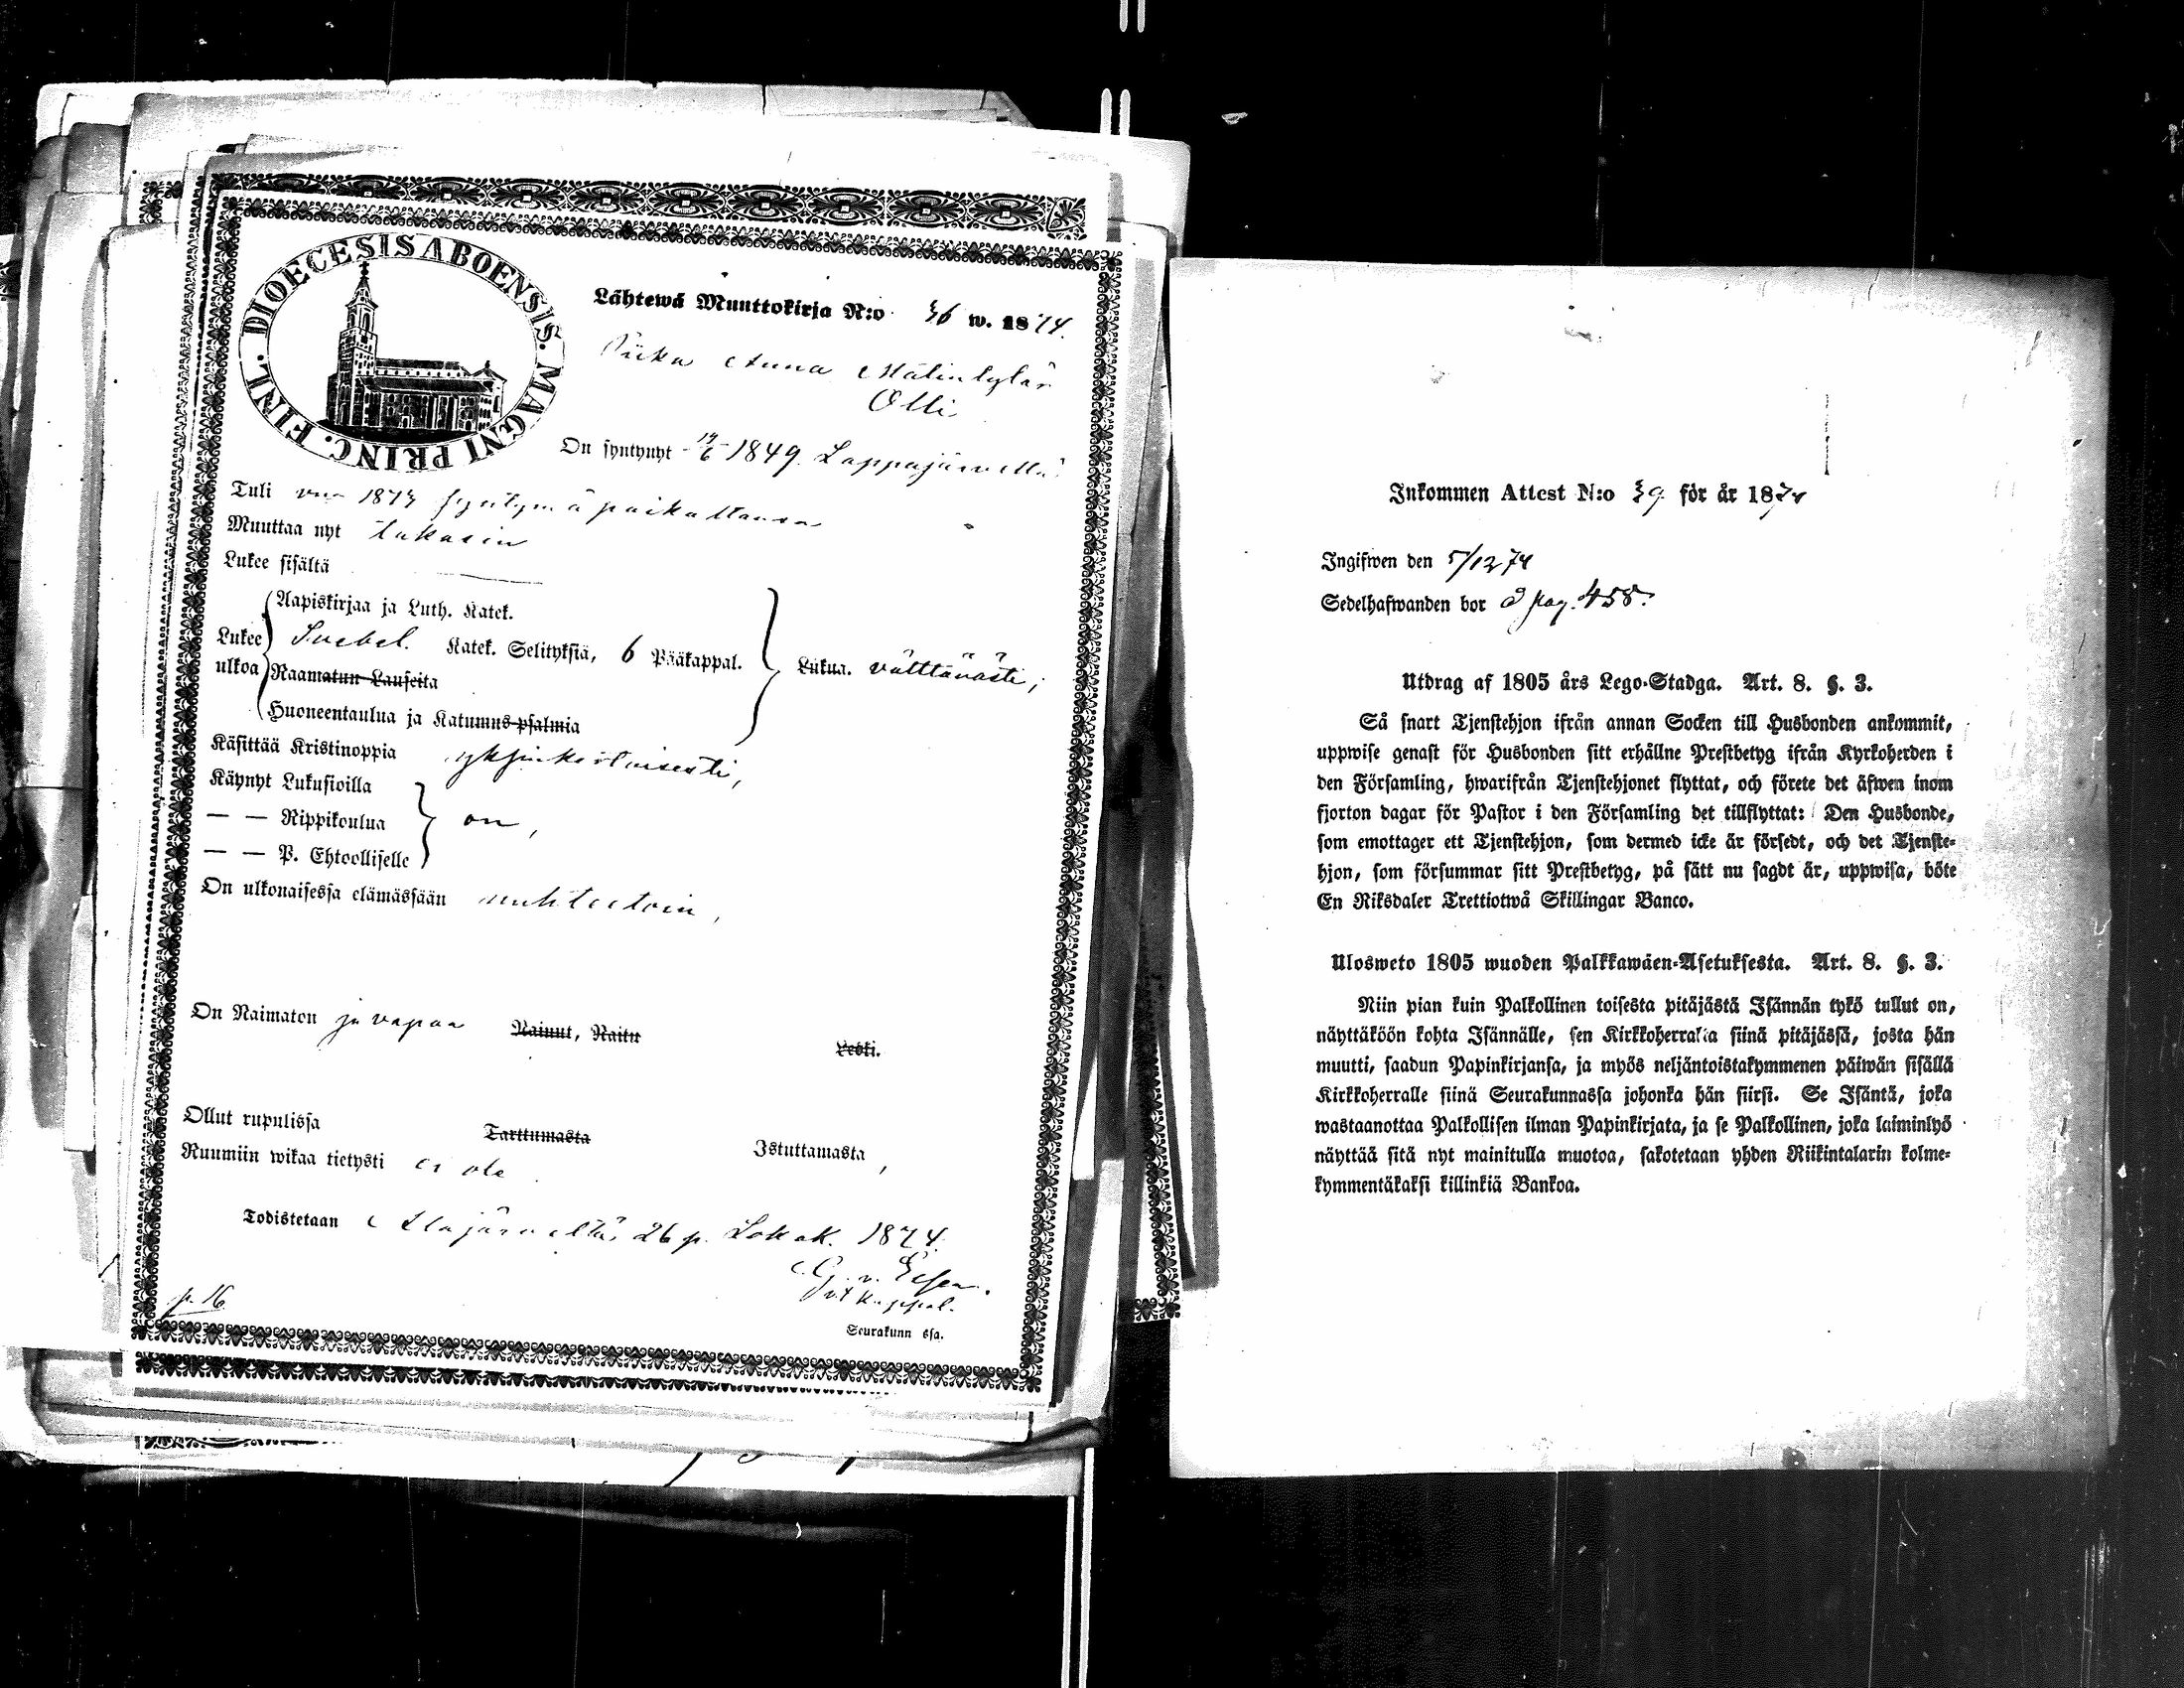 DIOECESIS ABOENSIS. MAGNI PRINC. FINL.
Lähtewä Muuttokirja N:o 36 w. 1874.
Piika Anna Matintytär
Olli
On syntynyt 1849 Lappajärvellä
Tuli 1873 syntymäpaikastansa
Muuttaa nyt takasin
Lukee sisältä
Aapiskirjaa ja Luth. Katek.
Lukee ulkoa Svebel. Katek. Selityksiä, 6 Pääkappal. Lukua. välttävästi,
Raamatun Lauseita
Huoneentaulua ja Katumus-psalmia
Käsittää Kristinoppia yksinkertaisesti,
Käynyt Lukusioilla
— — Rippikoulua on,
— — P. Ehtoollisella
On ulkonaisessa elämässään nuhteetoin,
On Naimaton ja vapaa Nainut, Naitu Leski.
Ollut rupulissa Tarttumasta Istuttamasta,
Ruumiin wikaa tietysti ei ole
Todistetaan Alajärveltä 26 p. Lokak. 1874.
v.t. kappal.
Seurakunn ssa.
p. 16
Inkommen Attest N:o 39 för år 1874
Ingifwen den 5/12 74
Sedelhafwanden bor å pag. 458.
Utdrag af 1805 års Lego-Stadga. Art. 8. §. 3.
Så snart Tjenstehjon ifrån annan Socken till Husbonden ankommit,
uppwise genast för Husbonden sitt erhållne Prestbetyg ifrån Kyrkoherden i
den Församling, hwarifrån Tjenstehjonet flyttat, och förete det äfwen inom
fjorton dagar för Pastor i den Församling det tillflyttat: Den Husbonde,
som emottager ett Tjenstehjon, som dermed icke är försedt, och det Tjenste-
hjon, som försummar sitt Prestbetyg, på sätt nu sagdt är, uppwisa, böte
En Riksdaler Trettiotwå Skillingar Banco.
Ulosweto 1805 wuoden Palkkawäen-Asetuksesta. Art. 8. §. 3.
Niin pian kuin Palkollinen toisesta pitäjästä Isännän tykö tullut on,
näyttäköön kohta Isännälle, sen Kirkkoherralta siinä pitäjässä, josta hän
muutti, saadun Papinkirjansa, ja myös neljäntoistakymmenen päiwän sisällä
Kirkkoherralle siinä Seurakunnassa johonka hän siirsi. Se Isäntä, joka
wastaanottaa Palkollisen ilman Papinkirjata, ja se Palkollinen, joka laiminlyö
näyttää sitä nyt mainitulla muotoa, sakotetaan yhden Riikintalarin kolme-
kymmentäkaksi killinkiä Bankoa.